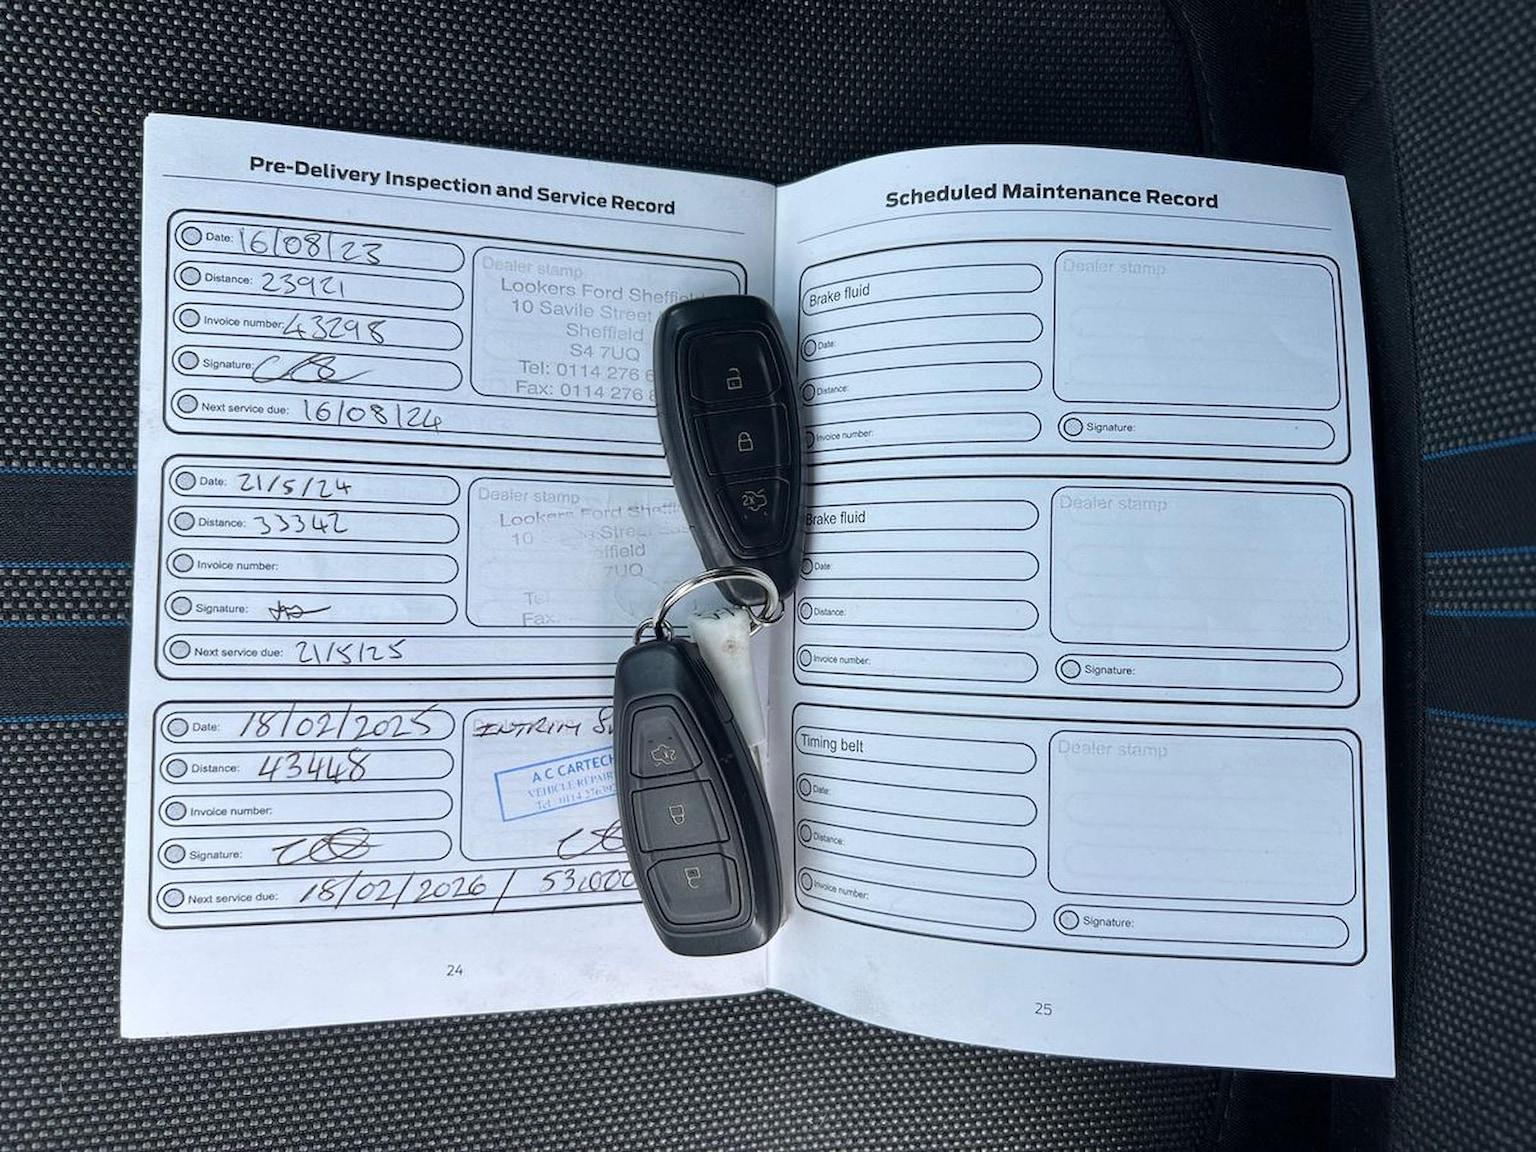 Pre-Delivery Inspection and Service Record
Date: 16/08/23
Distance: 23921
Invoice number: 43298
Signature:
Next service due: 16/08/24
Dealer stamp
Lookers Ford Sheffield
10 Savile Street
Sheffield
S4 7UQ
Tel: 0114 276
Fax: 0114 276
Date: 21/5/24
Distance: 33342
Invoice number:
Signature:
Next service due: 21/5/25
Dealer stamp
Lookers Ford
10
7UQ
Tel
Fax.
Date: 18/02/2025
Distance: 43448
Invoice number:
Signature:
Next service due: 18/02/2026 / 53,000
Dealer stamp
A C CARTECH
VEHICLE REPAIR
Tel: 0114
24
Scheduled Maintenance Record
Brake fluid
Date:
Distance:
Invoice number:
Dealer stamp
Signature:
Brake fluid
Date:
Distance:
Invoice number:
Dealer stamp
Signature:
Timing belt
Date:
Distance:
Invoice number:
Dealer stamp
Signature:
25
2X
2X